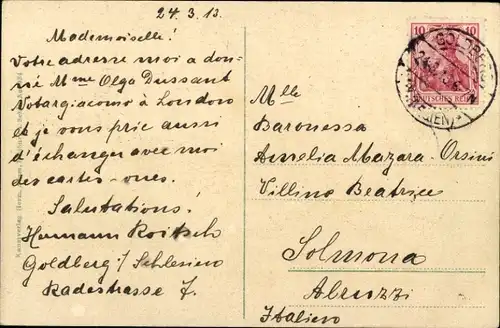 24. 3. 13.
Mademoiselle!
Votre adresse moi a don-
né Mme Olga Dussant
Votargiacomo à London
et je vous prie aussi
d'échanger avec moi
des cartes-vues.
Salutations!
Hermann Roitsch
Goldberg / Schlesien
Radestrasse 7.
Mlle
Baronessa
Amelia Mazara-Orsini
Villino Beatrice
Solmona
Abruzzi
Italien
10 10
DEUTSCHES REICH
GOLDBERG